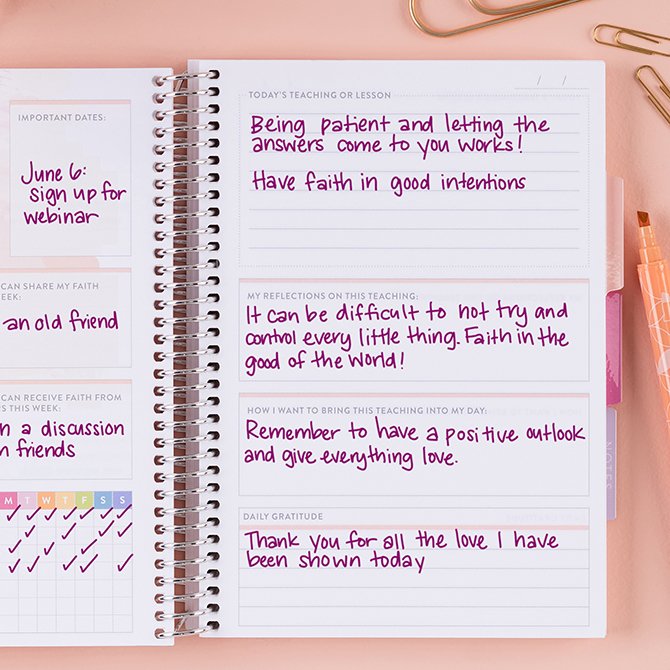 IMPORTANT DATES:
June 6:
sign up for
webinar
CAN SHARE MY FAITH
EEK:
an old friend
CAN RECEIVE FAITH FROM
RS THIS WEEK:
n a discussion
friends
M T W T F S S
/ /
TODAY'S TEACHING OR LESSON
Being patient and letting the
answers come to you works!
Have faith in good intentions
MY REFLECTIONS ON THIS TEACHING:
It can be difficult to not try and
control every little thing. Faith in the
good of the world!
HOW I WANT TO BRING THIS TEACHING INTO MY DAY:
Remember to have a positive outlook
and give everything love.
DAILY GRATITUDE
Thank you for all the love I have
been shown today
NOTES